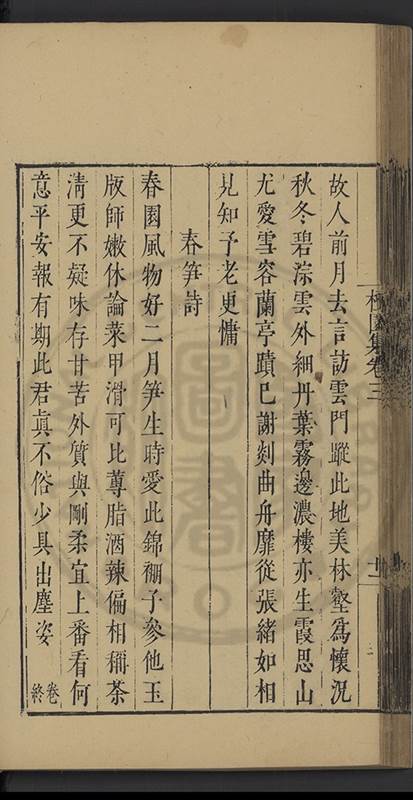 故人前月去言訪雲門蹤此地美林壑爲懷況
秋冬碧淙雲外細丹葉霧邊濃樓亦生霞思山
尤愛雪容蘭亭蹟已謝剡曲舟靡從張緒如相
見知予老更慵
春笋詩
春園風物好二月笋生時愛此錦棚子參他玉
版師嫩休論菜甲滑可比蓴脂酒辣偏相稱茶
淸更不疑味存甘苦外質與剛柔宜上番看何
意平安報有期此君眞不俗少具出塵姿
卷終
園集卷三